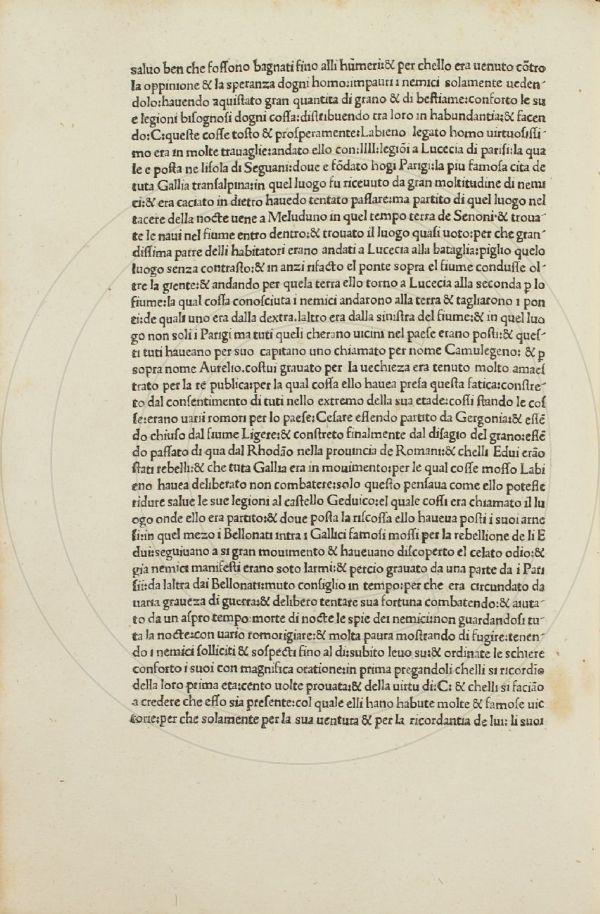 saluo ben che foſſono bagnati fino alli hũmeri:& per chello era uenuto cõtro
la oppinione & la speranza dogni homo:impauri i nemici solamente ueden-
dolo:hauendo aquistato gran quantita di grano & di bestiame:conforto le su
e legioni bisognosi dogni coſſa:distribuendo tra loro in habundantia:& facen
do:C:queste coſſe tosto & prosperamente:Labieno legato homo uirtuosiſſi-
mo era in molte trauaglie:andato ello con:IIII:legiõi a Lucecia di parisi:la qua
le e posta ne lisola di Seguani:doue e fõdato hogi Parigi:la piu famosa cita de
tuta Gallia transalpina:in quel luogo fu riceuuto da gran moltitudine di nemi
ci:& era caciato in dietro hauedo tentato paſſare:ma partito di quel luogo nel
tacere della nocte uene a Meluduno in quel tempo terra de Senoni·& troua-
te le naui nel fiume entro dentro:& trouato il luogo quasi uoto:per che gran-
diſſima parte delli habitatori erano andati a Lucecia alla bataglia:piglio quelo
luogo senza contrasto:& in anzi rifacto el ponte sopra el fiume conduſſe ol-
tre la giente:& andando per quela terra ello torno a Lucecia alla seconda p lo
fiume:la qual coſſa conosciuta i nemici andarono alla terra & tagliarono i pon
ti:de quali uno era dalla dextra.laltro era dalla sinistra del fiume:& in quel luo
go non soli i Parigi ma tuti queli cherano uicini nel paese erano posti:& ques-
ti tuti haueano per suo capitano uno chiamato per nome Camulegeno: & p
sopra nome Aurelio.costui grauato per la uechieza era tenuto molto amaes
trato per la re publica:per la qual coſſa ello hauea presa questa fatica:constre-
to dal consentimento di tuti nello extremo della sua etade:coſſi stando le coſ
ſe:erano uarii romori per lo paese:Cesare eſſendo partito da Gergonia:& eſſẽ
do chiuso dal fiume Ligere:& constreto finalmente dal disagio del grano:eſſẽ
do paſſato di qua dal Rhodão nella prouincia de Romani:& chelli Edui erão
stati rebelli:& che tuta Gallia era in mouimento:per le qual coſſe moſſo Labi
eno hauea deliberato non combatere:solo questo pensaua come ello poteſſe
ridure salue le sue legioni al castello Geduico:el quale coſſi era chiamato il lu
ogo onde ello era partito:& doue posta la riscoſſa ello haueua posti i suoi arne
si:in quel mezo i Bellonati intra i Gallici famosi moſſi per la rebellione de li E
dui:seguiuano a si gran mouimento & haueuano discoperto el celato odio:&
gia nemici manifesti erano soto larmi:& percio grauato da una parte da i Pari
sii:da laltra dai Bellonati:muto consiglio in tempo:per che era circundato da
uaria graueza di guerra:& delibero tentare sua fortuna combatendo: & aiuta-
to da un aspro tempo:morte di nocte le spie dei nemici:non guardandosi tu-
ta la nocte:con uario romorigiare:& molta paura mostrando di fugire:tenen-
do i nemici solliciti & sospecti fino al di:subito leuo su:& ordinate le schiere
conforto i suoi con magnifica oratione:in prima pregandoli chelli si ricordĩo
della loro prima eta:cento uolte prouata:& della uirtu di:C: & chelli si facião
a credere che eſſo sia presente:col quale elli hano habute molte & famose uic
torie:per che solamente per la sua uentura & per la ricordantia de lui: li suoi